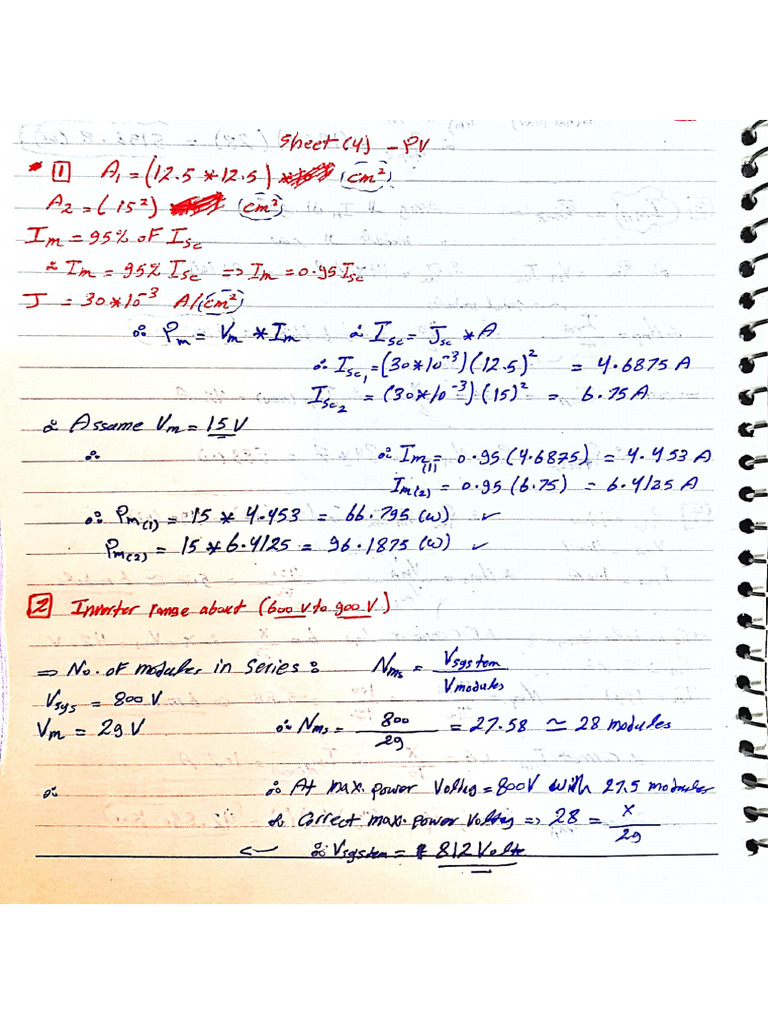 Sheet (4) - PV
* 1 A₁ = (12.5 * 12.5) (cm²)
A₂ = (15²) (cm²)
Im = 95% of Isc
∴ Im = 95% Isc => Im = 0.95 Isc
J = 30*10⁻³ A/(cm²)
∴ Pm = Vm * Im ∴ Isc = Jsc * A
∴ Isc₁ = (30*10⁻³)(12.5)² = 4.6875 A
Isc₂ = (30*10⁻³)(15)² = 6.75 A
∴ Assame Vm = 15 V
∴ ∴ Im(1) = 0.95 (4.6875) = 4.453 A
Im(2) = 0.95 (6.75) = 6.4125 A
∴ Pm(1) = 15 * 4.453 = 66.795 (w) ✓
Pm(2) = 15 * 6.4125 = 96.1875 (w) ✓
2 Inverter range about (600 V to 900 V)
=> No. of modules in series : Nms = Vsystem / Vmodules
Vsys = 800 V
Vm = 29 V ∴ Nms = 800 / 29 = 27.58 ≃ 28 modules
∴ ∴ At max. power Voltag = 800V with 27.5 modules
∴ Correct max. power Voltag => 28 = x / 29
∴ Vsystem = 812 Volts